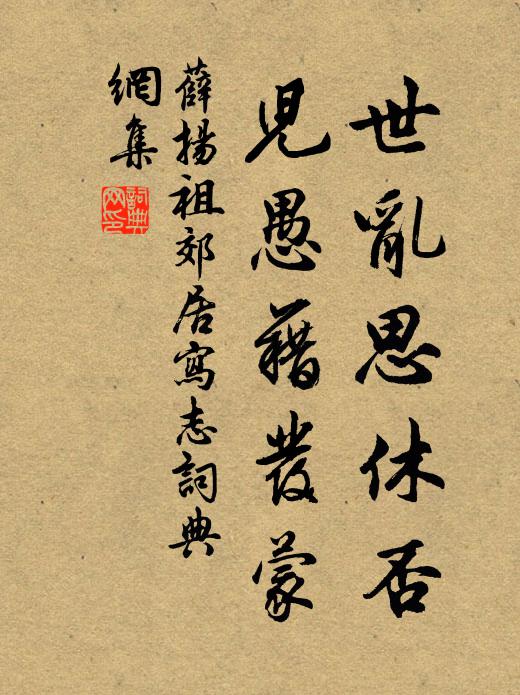 世亂思休否
兒愚藉發蒙
薛揚祖郊居寫志詞典
網集
詞典
网印